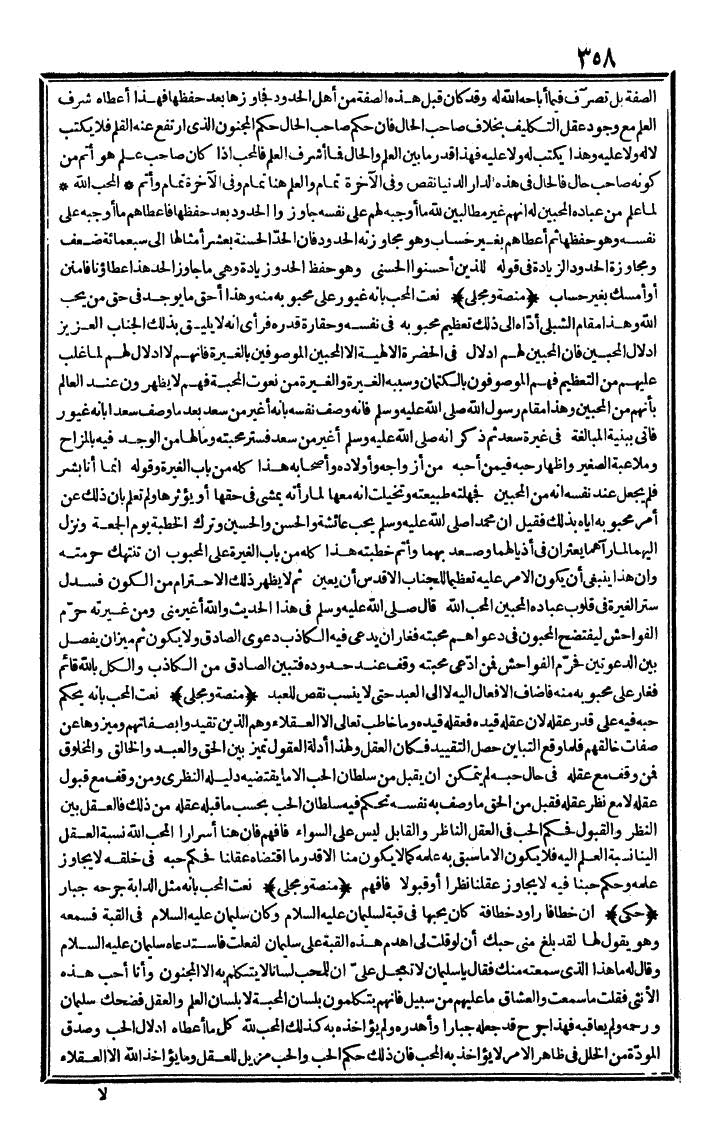 ٣٥٨
الصفة بل تصرّف فيما أباحه الله له وقد كان قبل هذه الصفة من أهل الحدود فجاوزها بعد حفظها فهذا أعطاه شرف
العلم مع وجود عقل التكليف بخلاف صاحب الحال فان حكم صاحب الحال حكم المجنون الذى ارتفع عنه القلم فلا يكتب
لا له ولا عليه وهذا يكتب له ولا عليه فهذا قدر ما بين العلم والحال فما أشرف العلم فالمحب اذا كان صاحب علم هو أتم من
كونه صاحب حال فالحال فى هذه الدار الدنيا نقص وفى الآخرة تمام والعلم هنا تمام وفى الآخرة تمام وأتم * المحب الله *
لما علم من عباده المحبين له انهم غير مطالبين لله ما أوجبه لهم على نفسه جاوزوا الحدود بعد حفظها فاعطاهم ما أوجبه على
نفسه وهو حفظها ثم أعطاهم بغير حساب وهو مجاوزته الحدود فان الحدّ الحسنة بعشر أمثالها الى سبعمائة ضعف
ومجاوزة الحدود الزيادة فى قوله للذين أحسنوا الحسنى وهو حفظ الحدود زيادة وهى ما جاوز الحد هذا عطاؤنا فامنن
أو أمسك بغير حساب ﴿منصة ومجلى﴾ نعت المحب بانه غيور على محبوبه منه وهذا أحق ما يوجد فى حق من يحب
الله وهذا مقام الشبلى أدّاه الى ذلك تعظيم محبوبه فى نفسه وحقارة قدره فرأى انه لا يليق بذلك الجناب العزيز
ادلال المحبين فان المحبين لهم ادلال فى الحضرة الالهية الا المحبين الموصوفين بالغيرة فانهم لا ادلال لهم لما غلب
عليهم من التعظيم فهم الموصوفون بالكتمان وسببه الغيرة والغيرة من نعوت المحبة فهم لا يظهرون عند العالم
بأنهم من المحبين وهذا مقام رسول الله صلى الله عليه وسلم فانه وصف نفسه بانه أغير من سعد بعد ما وصف سعدا بانه غيور
فاتى ببنية المبالغة فى غيرة سعد ثم ذكر انه صلى الله عليه وسلم أغير من سعد فستر محبته وما لها من الوجد فيه بالمزاح
وملاعبة الصغير واظهار حبه فيمن أحبه من أزواجه وأولاده وأصحابه هذا كله من باب الغيرة وقوله انما أنا بشر
فلم يجعل عند نفسه انه من المحبين فجهلته طبيعته وتخيلت انه معها لما رأته يمشى فى حقها أو يؤثرها ولم تعلم بان ذلك عن
أمر محبوبه اياه بذلك فقيل ان محمدا صلى الله عليه وسلم يحب عائشة والحسن والحسين وترك الخطبة يوم الجمعة ونزل
اليهما لما رآهما يعثران فى أذيالهما وصعد بهما وأتم خطبته هذا كله من باب الغيرة على المحبوب ان تنتهك حرمته
وان هذا ينبغى أن يكون الامر عليه تعظيما للجناب الاقدس أن يعين ثم لا يظهر ذلك الاحترام من الكون فسدل
ستر الغيرة فى قلوب عباده المحبين المحب الله قال صلى الله عليه وسلم فى هذا الحديث والله أغير منى ومن غيرته حرّم
الفواحش ليفتضح المحبون فى دعواهم محبته فغار ان يدعى فيه الكاذب دعوى الصادق ولا يكون ثم ميزان يفصل
بين الدعوتين فحرّم الفواحش فمن ادّعى محبته وقف عند حدوده فتبين الصادق من الكاذب والكل بالله قائم
فغار على محبوبه منه فاضاف الافعال اليه لا الى العبد حتى لا ينسب نقص للعبد ﴿منصة ومجلى﴾ نعت المحب بانه يحكم
حبه فيه على قدر عقله لان عقله قيده فعقله قيده وما خاطب تعالى الا العقلاء وهم الذين تقيدوا بصفاتهم وميزوها عن
صفات خالقهم فلما وقع التباين حصل التقييد فكان العقل ولهذا أدلة العقول تميز بين الحق والعبد والخالق والمخلوق
فمن وقف مع عقله فى حال حبه لم يتمكن ان يقبل من سلطان الحب الا ما يقتضيه دليله النظرى ومن وقف مع قبول
عقله لا مع نظر عقله فقبل من الحق ما وصف به نفسه تحكم فيه سلطان الحب بحسب ما قبله عقله من ذلك فالعقل بين
النظر والقبول فحكم الحب فى العقل الناظر والقابل ليس على السواء فافهم فان هنا أسرارا المحب الله نسبة العقل
الينا نسبة العلم اليه فلا يكون الا ما سبق به علمه كما لا يكون منا الا قدر ما اقتضاه عقلنا فحكم حبه فى خلقه لا يجاوز
علمه وحكم حبنا فيه لا يجاوز عقلنا نظرا أو قبولا فافهم ﴿منصة ومجلى﴾ نعت المحب بانه مثل الدابة جرحه جبار
﴿حكى﴾ ان خطافا راود خطافة كان يحبها فى قبة لسليمان عليه السلام وكان سليمان عليه السلام فى القبة فسمعه
وهو يقول لها لقد بلغ منى حبك أن لو قلت لى اهدم هذه القبة على سليمان لفعلت فاستدعاه سليمان عليه السلام
وقال له ما هذا الذى سمعته منك فقال يا سليمان لا تعجل علىّ ان للمحب لسانا لا يتكلم به الا المجنون وأنا أحب هذه
الأنثى فقلت ما سمعت والعشاق ما عليهم من سبيل فانهم يتكلمون بلسان المحبة لا بلسان العلم والعقل فضحك سليمان
ورحمه ولم يعاقبه فهذا جرح قد جعله جبارا وأهدره ولم يؤاخذه به كذلك المحب لله كل ما أعطاه ادلال الحب وصدق
المودّة من الخلل فى ظاهر الامر لا يؤاخذ به المحب فان ذلك حكم الحب والحب مزيل للعقل وما يؤاخذ الله الا العقلاء
لا